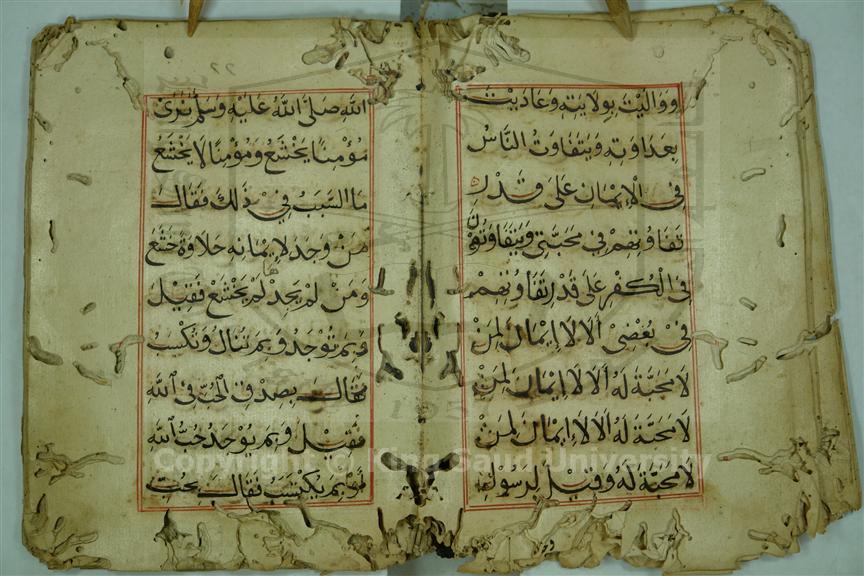 وواليت بولايته وعاديت
بعداوته ويتفاوت الناس
في الإيمان على قدر
تفاوتهم في محبتي ويتفاوتون
في الكفر على قدر تفاوتهم
في بغضي ألا لا إيمان لمن
لا محبة له ألا لا إيمان لمن
لا محبة له ألا لا إيمان لمن
لا محبة له وقيل لرسول
٢٢
الله صلى الله عليه وسلم نرى
مؤمنا يخشع ومؤمنا لا يخشع
ما السبب في ذلك فقال
من وجد لإيمانه حلاوة خشع
ومن لم يجدها لم يخشع فقيل
وبم توجد وبم تنال وتكسب
فقال بصدق الحب في الله
فقيل وبم يوجد حب الله
أو بم يكتسب فقال بحب
Copyright © King Saud University